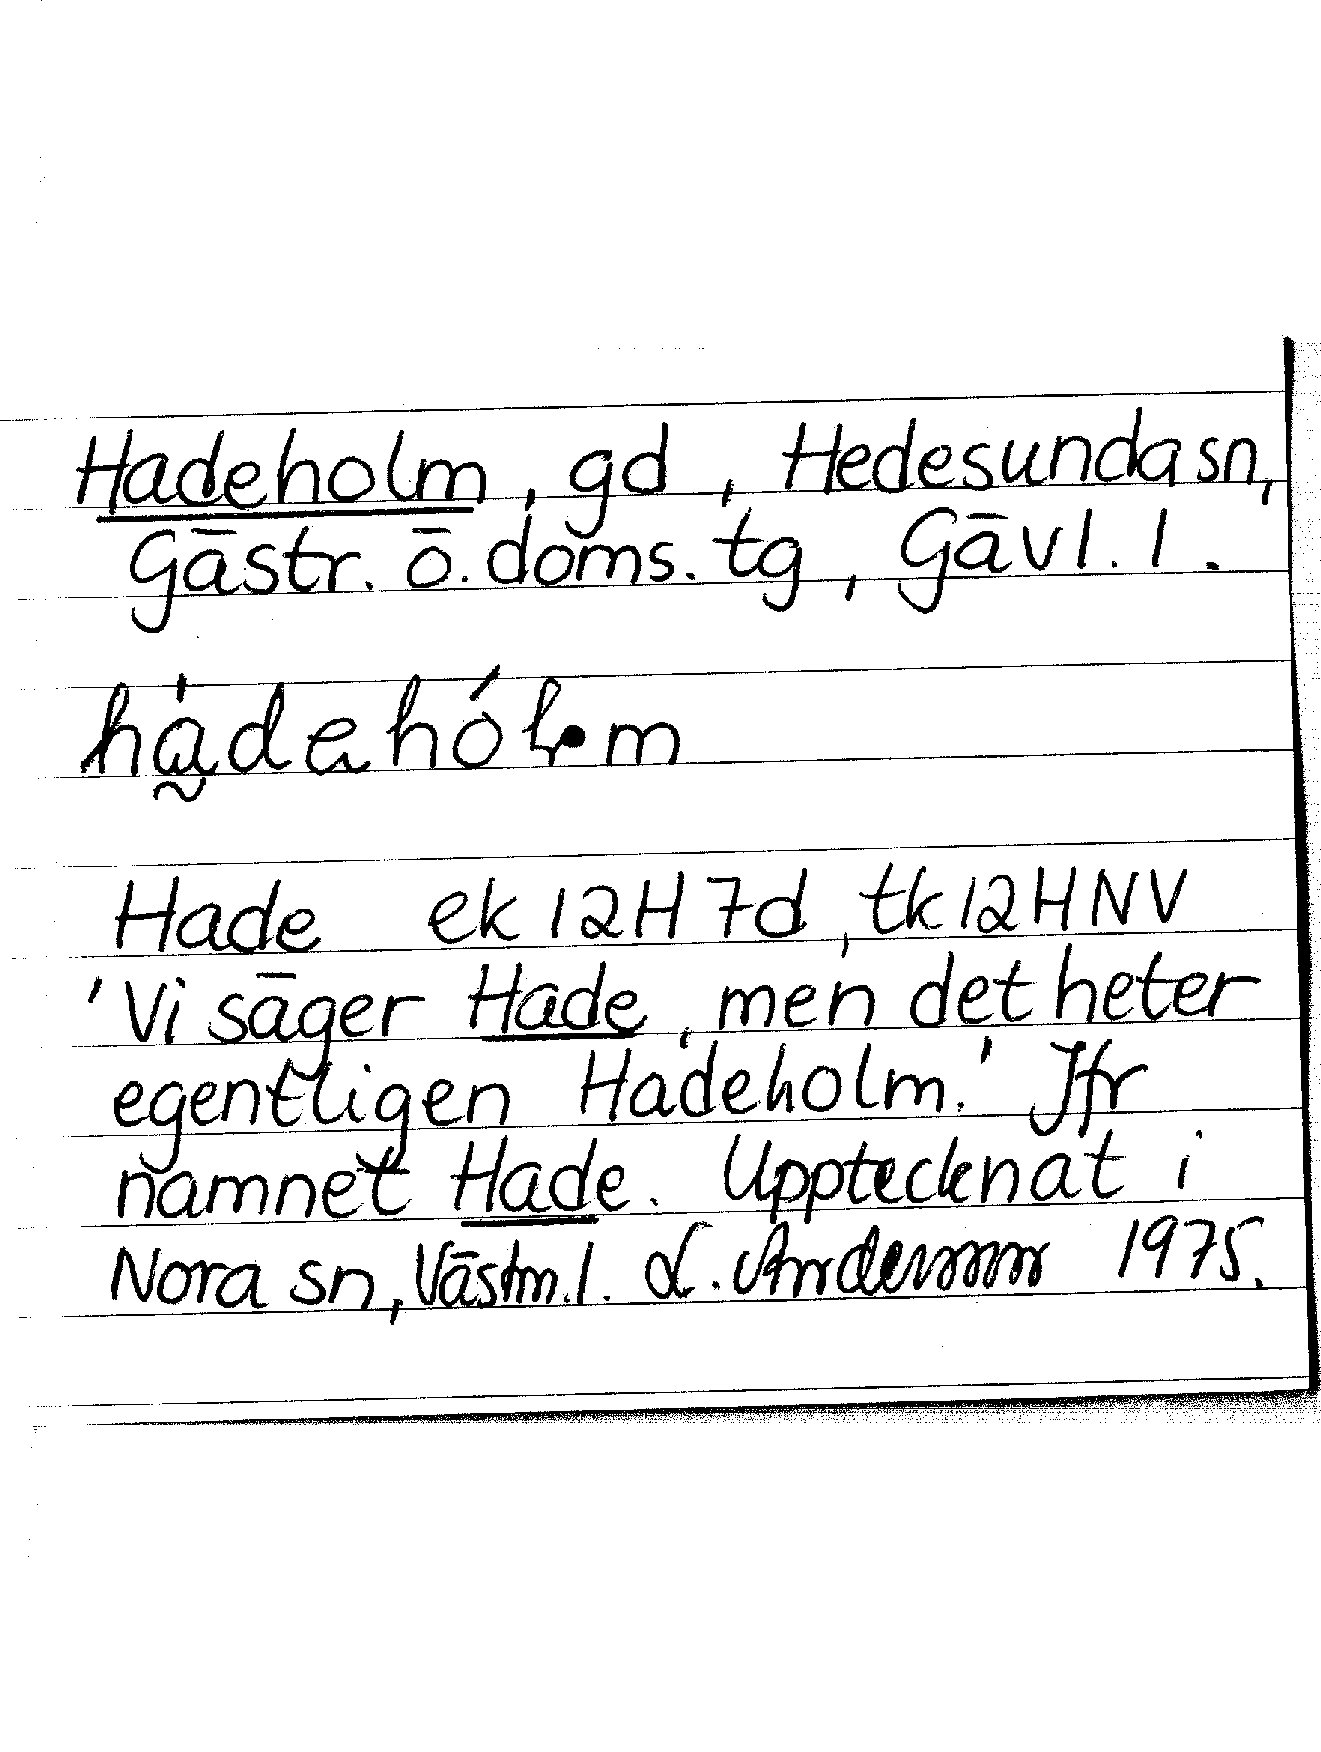 Hadeholm, gd, Hedesunda sn,
Gästr. ö. doms. tg, Gävl. l.
hàdehól•m
Hade ek 12H 7d, tk 12H NV
'Vi säger Hade, men det heter
egentligen Hadeholm.' Jfr
namnet Hade. Upptecknat i
Nora sn, Västm. l. L. Andersson 1975.